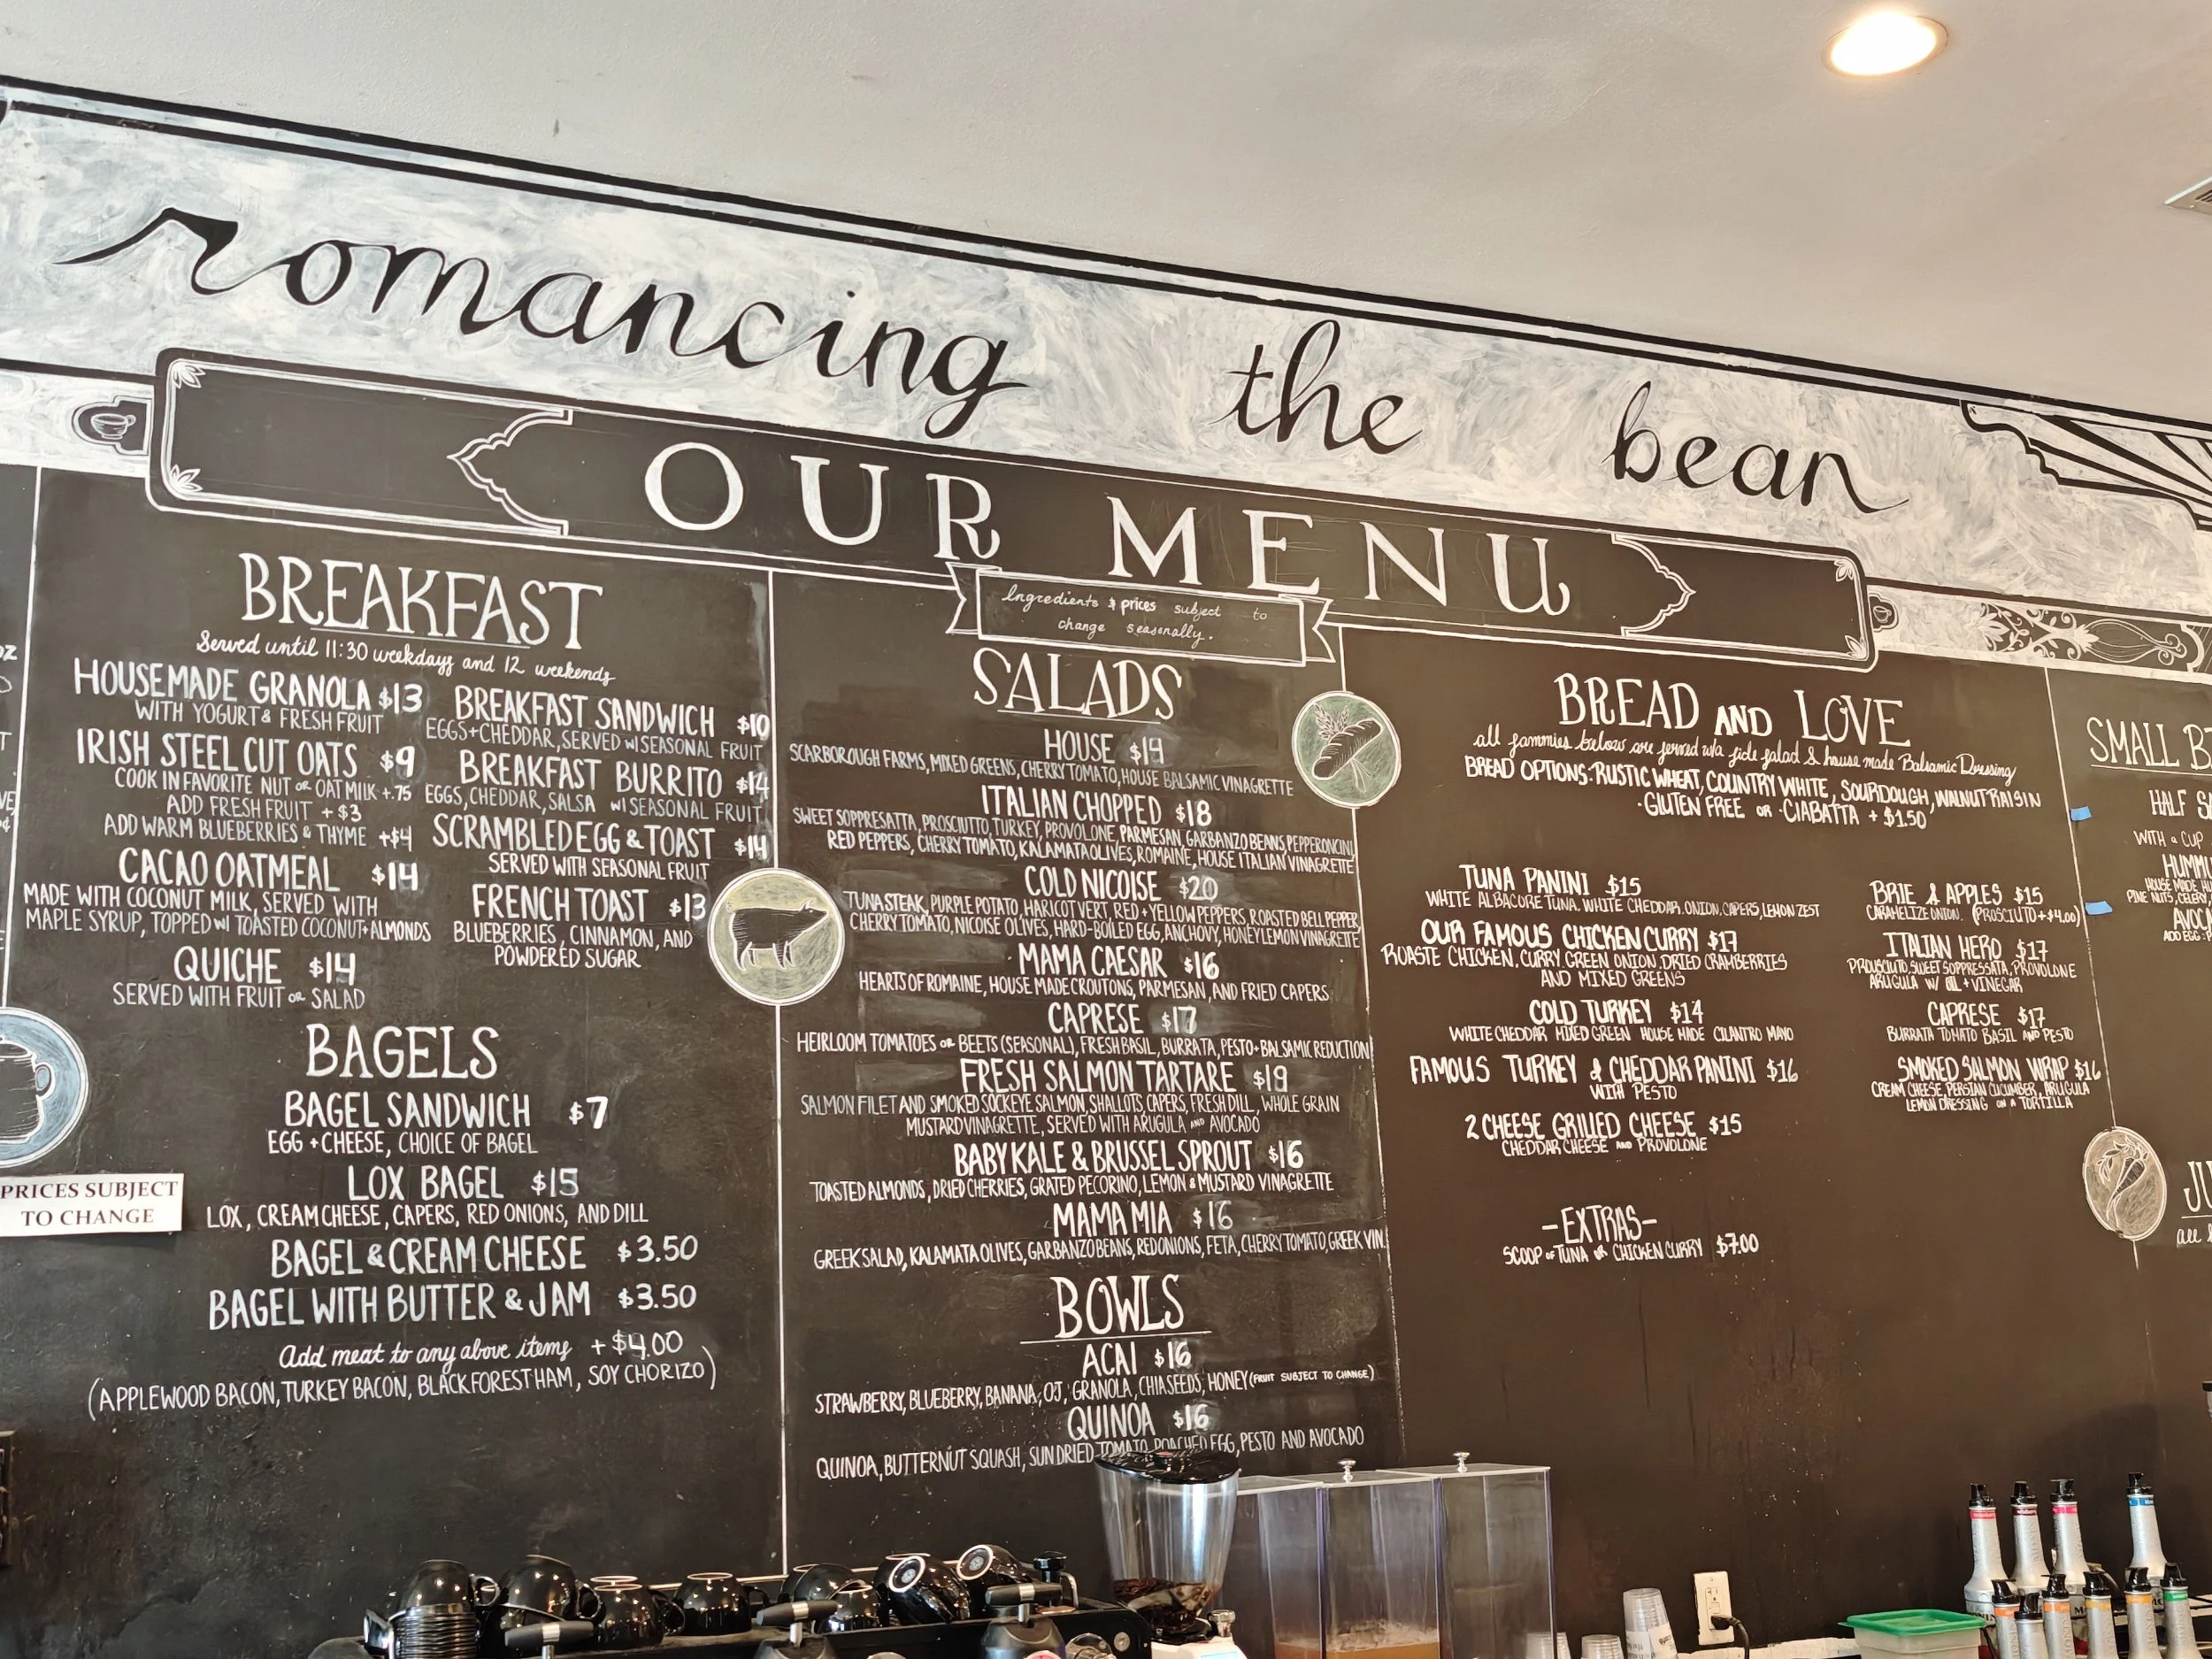 romancing the bean
OUR MENU
Ingredients & prices subject to
change seasonally.
BREAKFAST
Served until 11:30 weekdays and 12 weekends
HOUSEMADE GRANOLA $13
WITH YOGURT & FRESH FRUIT
IRISH STEEL CUT OATS $9
COOK IN FAVORITE NUT OR OAT MILK +.75
ADD FRESH FRUIT + $3
ADD WARM BLUEBERRIES & THYME +$4
CACAO OATMEAL $14
MADE WITH COCONUT MILK, SERVED WITH
MAPLE SYRUP, TOPPED W/ TOASTED COCONUT + ALMONDS
QUICHE $14
SERVED WITH FRUIT OR SALAD
BREAKFAST SANDWICH $10
EGGS + CHEDDAR, SERVED W/ SEASONAL FRUIT
BREAKFAST BURRITO $14
EGGS, CHEDDAR, SALSA W/ SEASONAL FRUIT
SCRAMBLED EGG & TOAST $14
SERVED WITH SEASONAL FRUIT
FRENCH TOAST $13
BLUEBERRIES, CINNAMON, AND
POWDERED SUGAR
BAGELS
BAGEL SANDWICH $7
EGG + CHEESE, CHOICE OF BAGEL
LOX BAGEL $15
LOX, CREAM CHEESE, CAPERS, RED ONIONS, AND DILL
BAGEL & CREAM CHEESE $3.50
BAGEL WITH BUTTER & JAM $3.50
Add meat to any above items + $4.00
(APPLEWOOD BACON, TURKEY BACON, BLACK FOREST HAM, SOY CHORIZO)
PRICES SUBJECT
TO CHANGE
SALADS
HOUSE $14
SCARBOROUGH FARMS, MIXED GREENS, CHERRY TOMATO, HOUSE BALSAMIC VINAGRETTE
ITALIAN CHOPPED $18
SWEET SOPPRESATTA, PROSCIUTTO, TURKEY, PROVOLONE, PARMESAN, GARBANZO BEANS, PEPPERONCINI
RED PEPPERS, CHERRY TOMATO, KALAMATA OLIVES, ROMAINE, HOUSE ITALIAN VINAGRETTE
COLD NICOISE $20
TUNA STEAK, PURPLE POTATO, HARICOT VERT, RED + YELLOW PEPPERS, ROASTED BELL PEPPER,
CHERRY TOMATO, NICOISE OLIVES, HARD-BOILED EGG, ANCHOVY, HONEY LEMON VINAGRETTE
MAMA CAESAR $16
HEARTS OF ROMAINE, HOUSE MADE CROUTONS, PARMESAN, AND FRIED CAPERS
CAPRESE $17
HEIRLOOM TOMATOES OR BEETS (SEASONAL), FRESH BASIL, BURRATA, PESTO + BALSAMIC REDUCTION
FRESH SALMON TARTARE $19
SALMON FILET AND SMOKED SOCKEYE SALMON, SHALLOTS, CAPERS, FRESH DILL, WHOLE GRAIN
MUSTARD VINAGRETTE, SERVED WITH ARUGULA AND AVOCADO
BABY KALE & BRUSSEL SPROUT $16
TOASTED ALMONDS, DRIED CHERRIES, GRATED PECORINO, LEMON & MUSTARD VINAGRETTE
MAMA MIA $16
GREEK SALAD, KALAMATA OLIVES, GARBANZO BEANS, RED ONIONS, FETA, CHERRY TOMATO, GREEK VIN.
BOWLS
ACAI $16
STRAWBERRY, BLUEBERRY, BANANA, OJ, GRANOLA, CHIA SEEDS, HONEY (FRUIT SUBJECT TO CHANGE)
QUINOA $16
QUINOA, BUTTERNUT SQUASH, SUN DRIED TOMATO, POACHED EGG, PESTO AND AVOCADO
BREAD AND LOVE
all sammies below are served w/a side salad & house made Balsamic Dressing
BREAD OPTIONS: RUSTIC WHEAT, COUNTRY WHITE, SOURDOUGH, WALNUT RAISIN
· GLUTEN FREE OR · CIABATTA + $1.50
TUNA PANINI $15
WHITE ALBACORE TUNA, WHITE CHEDDAR, ONION, CAPERS, LEMON ZEST
OUR FAMOUS CHICKEN CURRY $17
ROASTE CHICKEN, CURRY, GREEN ONION, DRIED CRAMBERRIES
AND MIXED GREENS
COLD TURKEY $14
WHITE CHEDDAR MIXED GREEN HOUSE MADE CILANTRO MAYO
FAMOUS TURKEY & CHEDDAR PANINI $16
WITH PESTO
2 CHEESE GRILLED CHEESE $15
CHEDDAR CHEESE AND PROVOLONE
BRIE & APPLES $15
CARAMELIZE ONION. (PROSCIUTO +$4.00)
ITALIAN HERO $17
PROUSCIUTO, SWEET SOPPRESSATA, PROVOLONE
ARUGULA W/ OIL + VINEGAR
CAPRESE $17
BURRATA TOMATO BASIL AND PESTO
SMOKED SALMON WRAP $16
CREAM CHEESE, PERSIAN CUCUMBER, ARUGULA
LEMON DRESSING ON A TORTILLA
-EXTRAS-
SCOOP OF TUNA OR CHICKEN CURRY $7.00
SMALL
HALF
WITH a CUP
HOUSE MADE
PINE NUTS, CELERY,
ADD EGG